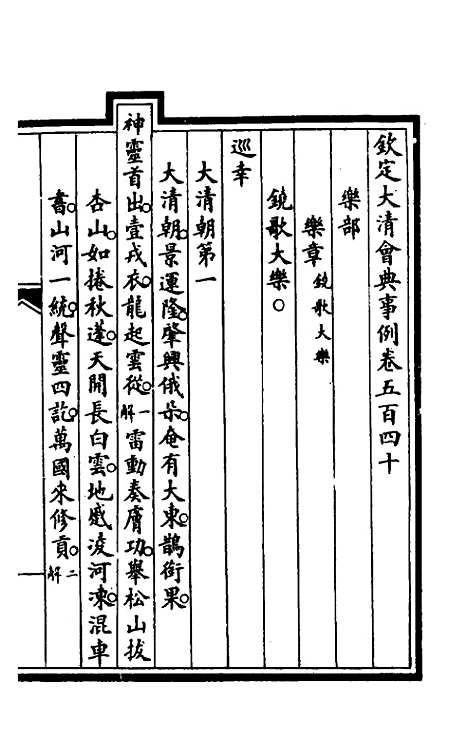 欽定大清會典事例卷五百四十
樂部
樂章鐃歌大樂
鐃歌大樂○
巡幸
大清朝第一
大清朝○景運隆○肇興俄朵○奄有大東○鵲銜果○
神靈首出○壹戎衣○龍起雲從○一解雷動奏膚功○舉松山拔
杏山○如捲秋蓬○天開長白雲○地蹙凌河凍○混車
書○山河一統○聲靈四訖○萬國來修貢○二解